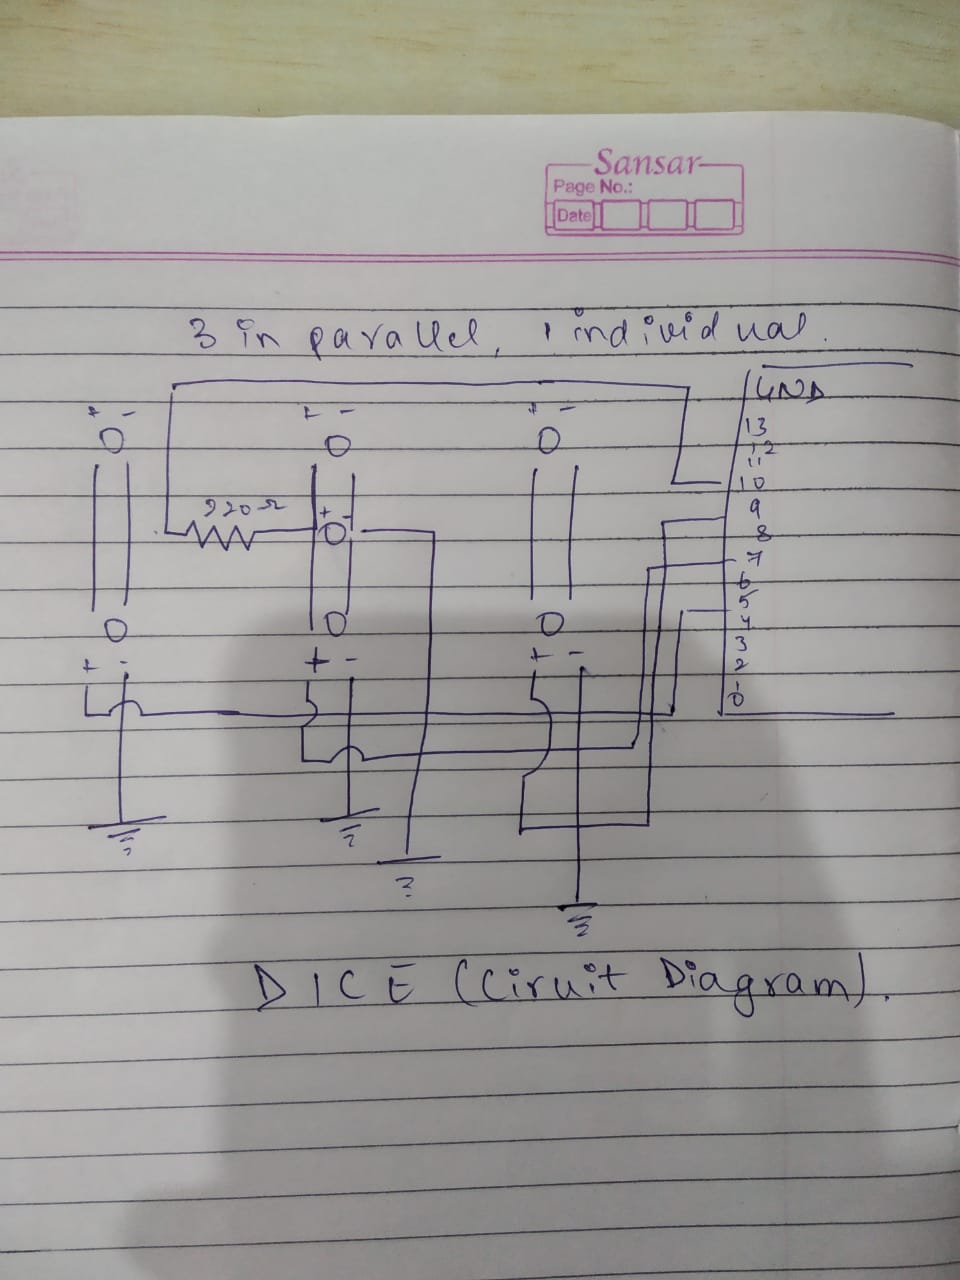 Sansar
Page No.:
Date
3 in parallel, 1 individual.
GND
+ -
+ -
+ -
13
12
11
10
220Ω
9
+ -
8
7
6
5
4
+ -
+ -
+ -
3
2
1
0
DICE (Ciruit Diagram).